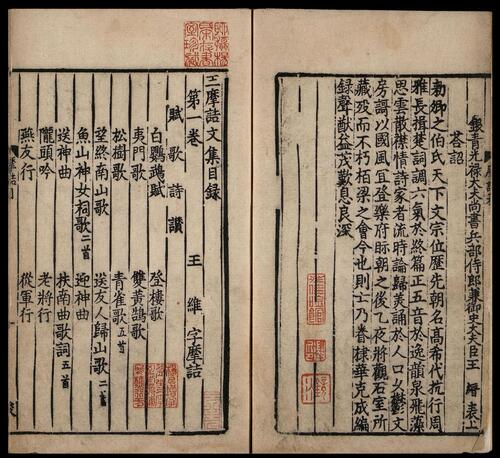 銀青光祿大夫尚書兵部侍郎兼御史大夫臣王縉表上
答詔
勑卿之伯氏天下文宗位歷先朝名高希代抗行周
雅長揖楚詞調六氣於終篇正五音於逸韻泉飛藻
思雲散襟情詩家者流時論歸美誦於人口久鬱文
房謌以國風宜登樂府眎朝之後乙夜將觀石室所
藏歿而不朽栢梁之會今也則亡乃眷棣華克成編
錄聲猷益茂歎息良深
王摩詰文集目錄
第一卷 王維字摩詰
賦歌詩讚
白鸚鵡賦 登樓歌
夷門歌 雙黃鵠歌
松樹歌 青雀歌五首
望終南山歌 送友人歸山歌二首
魚山神女祠歌二首 迎神曲
送神曲 扶南曲歌詞五首
隴頭吟 老將行
燕支行 從軍行